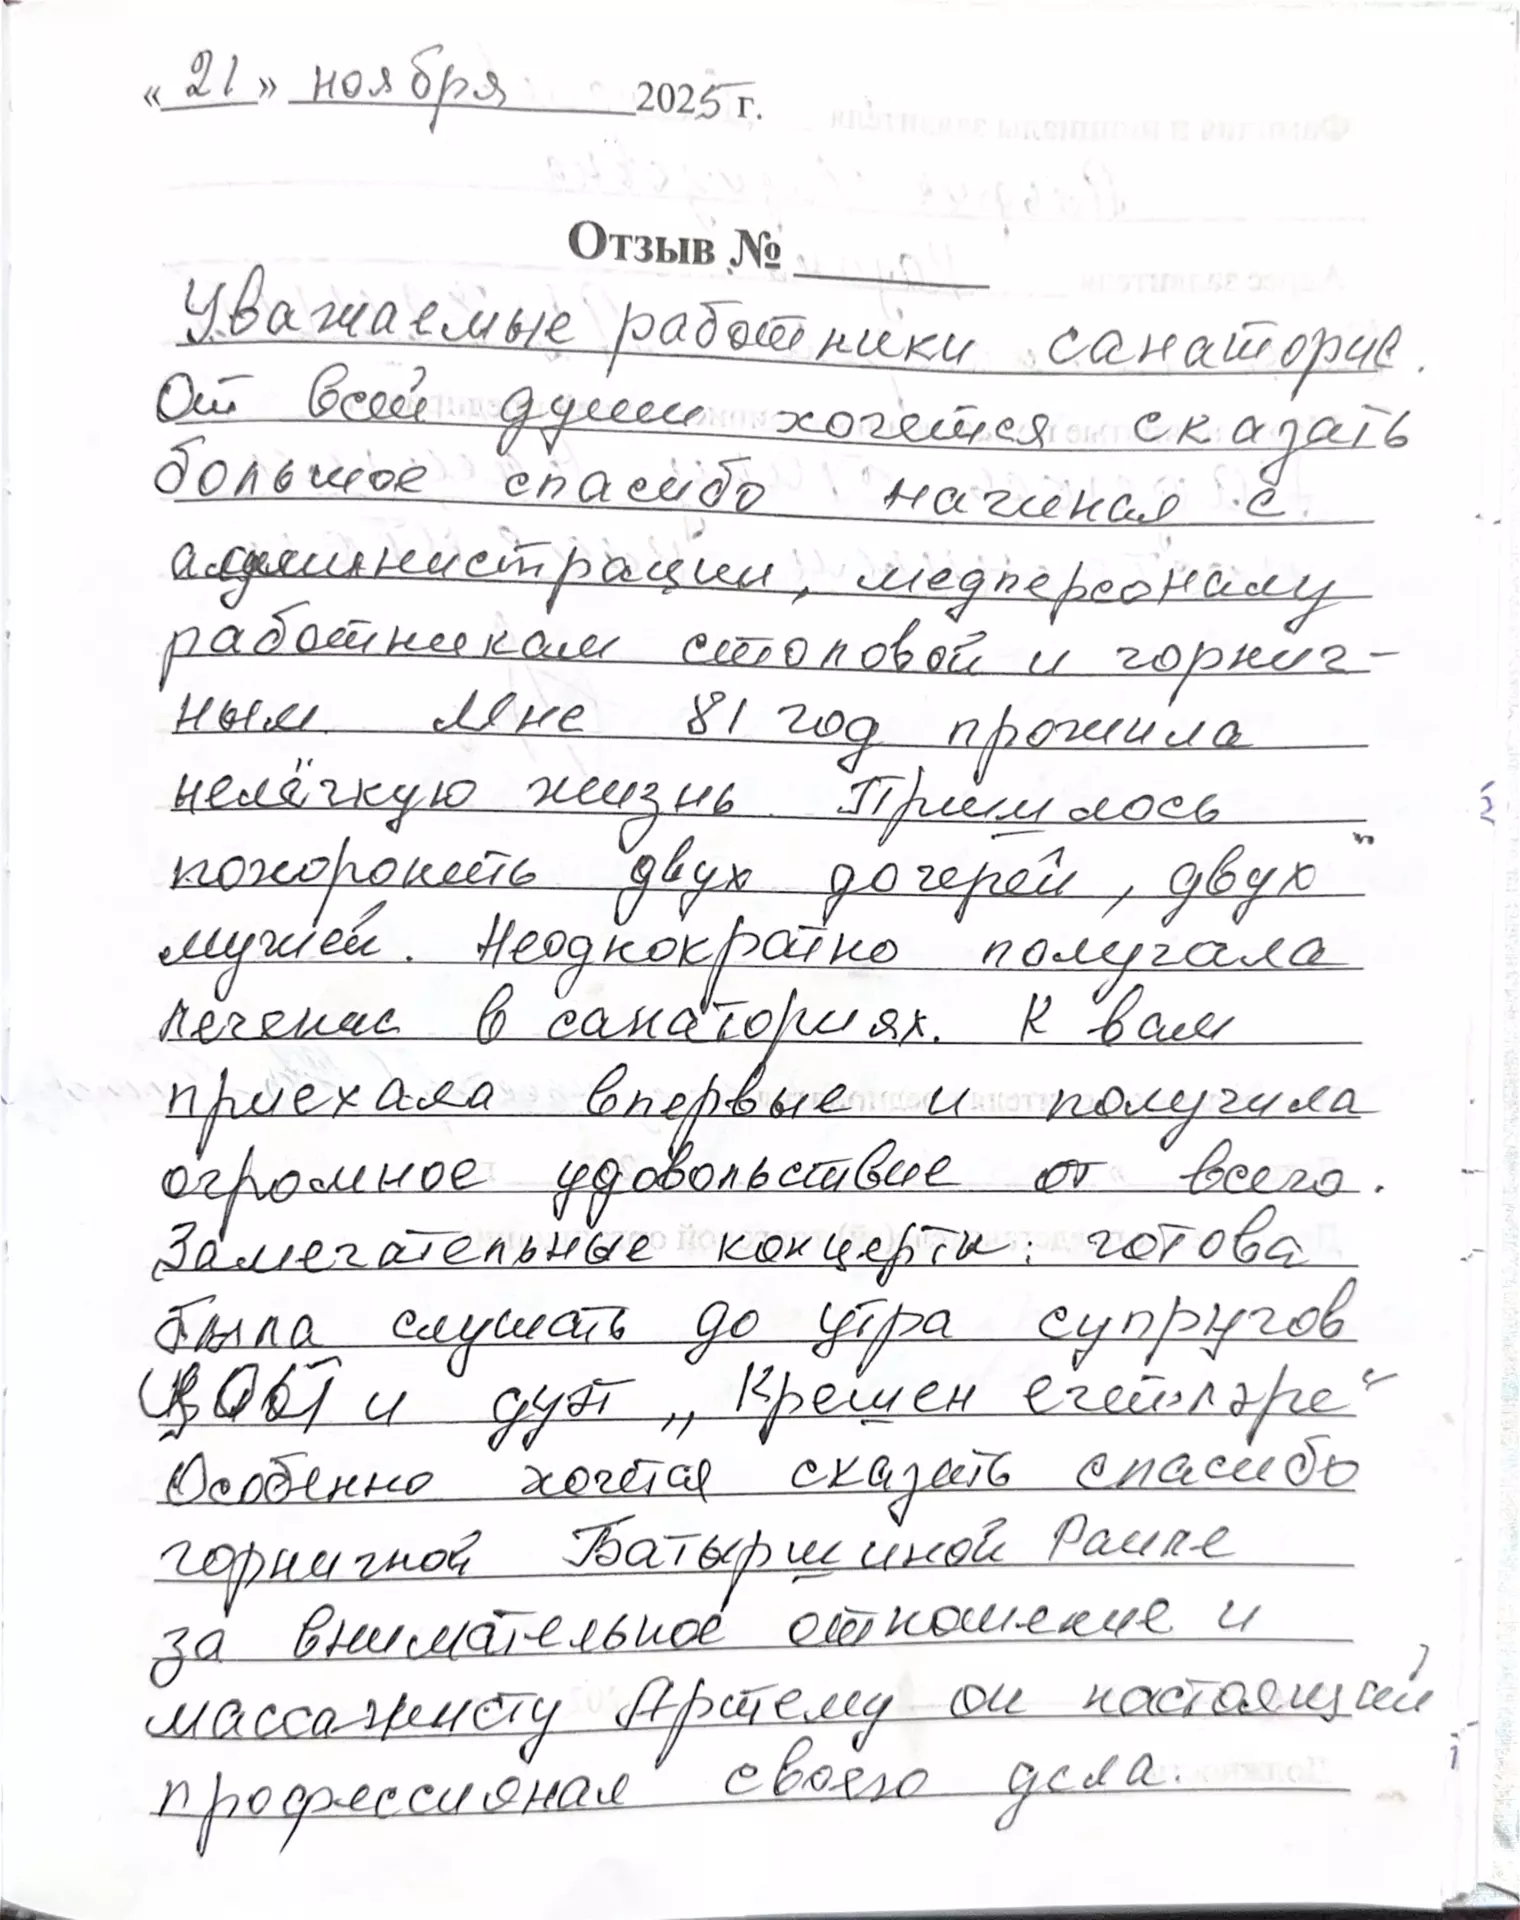 «21» ноября 2025 г.
Отзыв №
Уважаемые работники санатория.
От всей души хочется сказать
большое спасибо начиная с
администрации, медперсоналу
работникам столовой и горнич-
ным. Мне 81 год прожила
нелёгкую жизнь. Пришлось
похоронить двух дочерей, двух
мужей. Неоднократно получала
лечение в санаториях. К вам
приехала впервые и получила
огромное удовольствие от всего.
Замечательные концерты: готова
была слушать до утра супругов
и дуэт „Крешен егетләре"
Особенно хочется сказать спасибо
горничной Батыршиной Раиле
за внимательное отношение и
массажисту Артему он настоящий
профессионал своего дела.